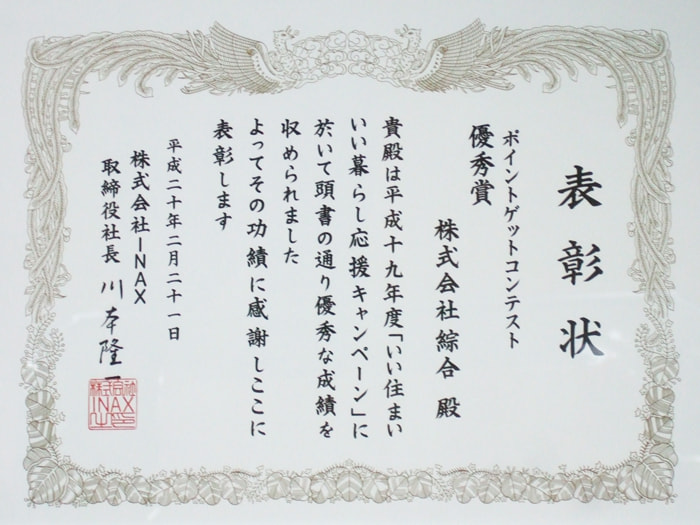 表彰状
ポイントゲットコンテスト
優秀賞
株式会社綜合 殿
貴殿は平成十九年度「いい住まい
いい暮らし応援キャンペーン」に
於いて頭書の通り優秀な成績を
収められました
よってその功績に感謝しここに
表彰します
平成二十年二月二十一日
株式会社INAX
取締役社長 川本隆一
株式会社
INAX